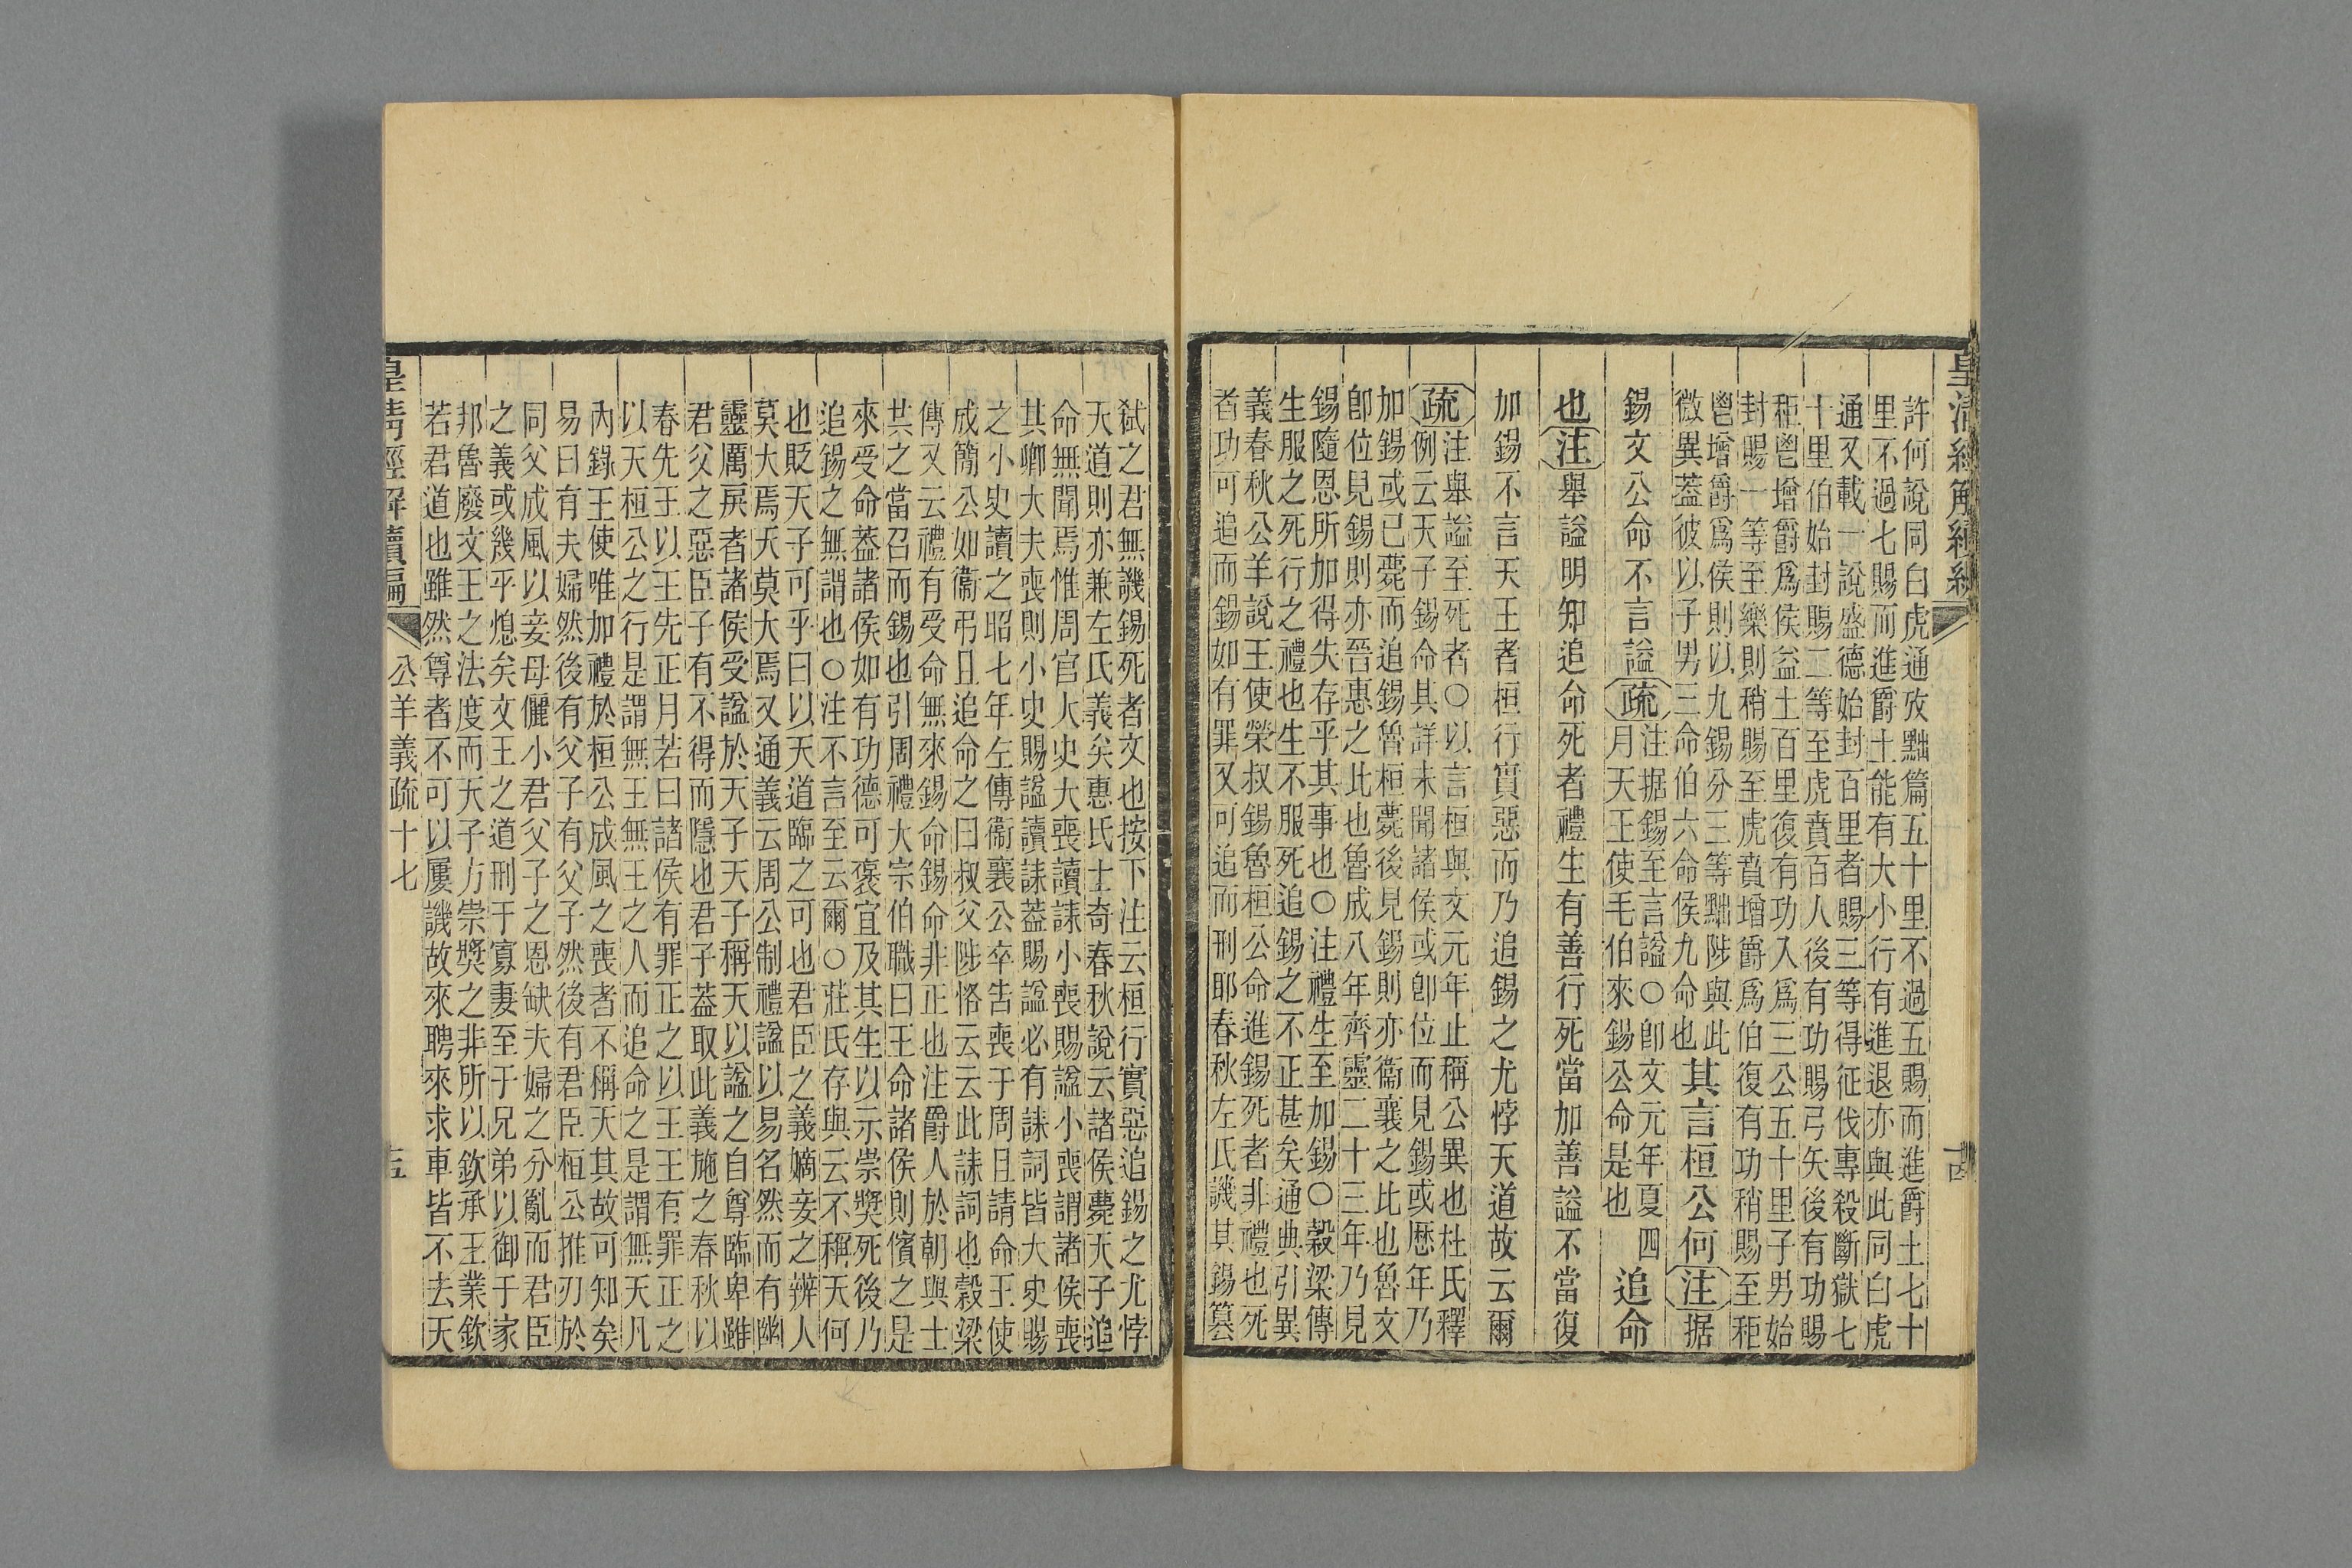 皇清經解續編
許何說同白虎通攷黜篇五十里不過五賜而進爵土七十
里不過七賜而進爵土能有大小行有進退亦與此同白虎
通又載一說盛德始封百里者賜三等得征伐專殺斷獄七
十里伯始封賜二等至虎賁百人後有功賜弓矢後有功賜
秬鬯增爵爲侯益土百里復有功入爲三公五十里子男始
封賜一等至樂則稍賜至虎賁增爵爲伯復有功稍賜至秬
鬯增爵爲侯則以九錫分三等黜陟與此
微異葢彼以子男三命伯六命侯九命也
其言桓公何注据
錫文公命不言謚疏
注据錫至言謚○卽文元年夏四
月天王使毛伯來錫公命是也
追命
也注舉謚明知追命死者禮生有善行死當加善謚不當復
加錫不言天王者桓行實惡而乃追錫之尤悖天道故云爾
疏
注舉謚至死者○以言桓與文元年止稱公異也杜氏釋
例云天子錫命其詳未聞諸侯或卽位而見錫或歷年乃
加錫或已薨而追錫魯桓薨後見錫則亦衞襄之比也魯文
卽位見錫則亦晉惠之比也魯成八年齊靈二十三年乃見
錫隨恩所加得失存乎其事也○注禮生至加錫○穀梁傳
生服之死行之禮也生不服死追錫之不正甚矣通典引異
義春秋公羊說王使榮叔錫魯桓公命進錫死者非禮也死
者功可追而錫如有罪又可追而刑耶春秋左氏譏其錫簒
十四
弑之君無譏錫死者文也按下注云桓行實惡追錫之尤悖
天道則亦兼左氏義矣惠氏士奇春秋說云諸侯薨天子追
命無聞焉惟周官大史大喪讀誄小喪賜諡小喪謂諸侯喪
其卿大夫喪則小史賜諡讀誄葢賜諡必有誄詞皆大史賜
之小史讀之昭七年左傳衞襄公卒告喪于周且請命王使
成簡公如衞弔且追命之曰叔父陟恪云云此誄詞也穀梁
傳又云禮有受命無來錫命錫命非正也注爵人於朝與士
共之當召而錫也引周禮大宗伯職曰王命諸侯則儐之是
來受命葢諸侯如有功德可褒宜及其生以示崇獎死後乃
追錫之無謂也○注不言至云爾○莊氏存與云不稱天何
也貶天子可乎曰以天道臨之可也君臣之義嫡妾之辨人
莫大焉天莫大焉又通義云周公制禮諡以易名然而有幽
靈厲戾者諸侯受諡於天子天子稱天以諡之自尊臨卑雖
君父之惡臣子有不得而隱也君子葢取此義施之春秋以
春先王以王先正月若曰諸侯有罪正之以王王有罪正之
以天桓公之行是謂無王無王之人而追命之是謂無天凡
內錄王使唯加禮於桓公成風之喪者不稱天其故可知矣
易曰有夫婦然後有父子有父子然後有君臣桓公推刃於
同父成風以妾母儷小君父子之恩缺夫婦之分亂而君臣
之義或幾乎熄矣文王之道刑于寡妻至于兄弟以御于家
邦魯廢文王之法度而天子方崇獎之非所以欽承王業欽
若君道也雖然尊者不可以屢譏故來聘來求車皆不去天
皇清經解續編
公羊義疏十七
十五